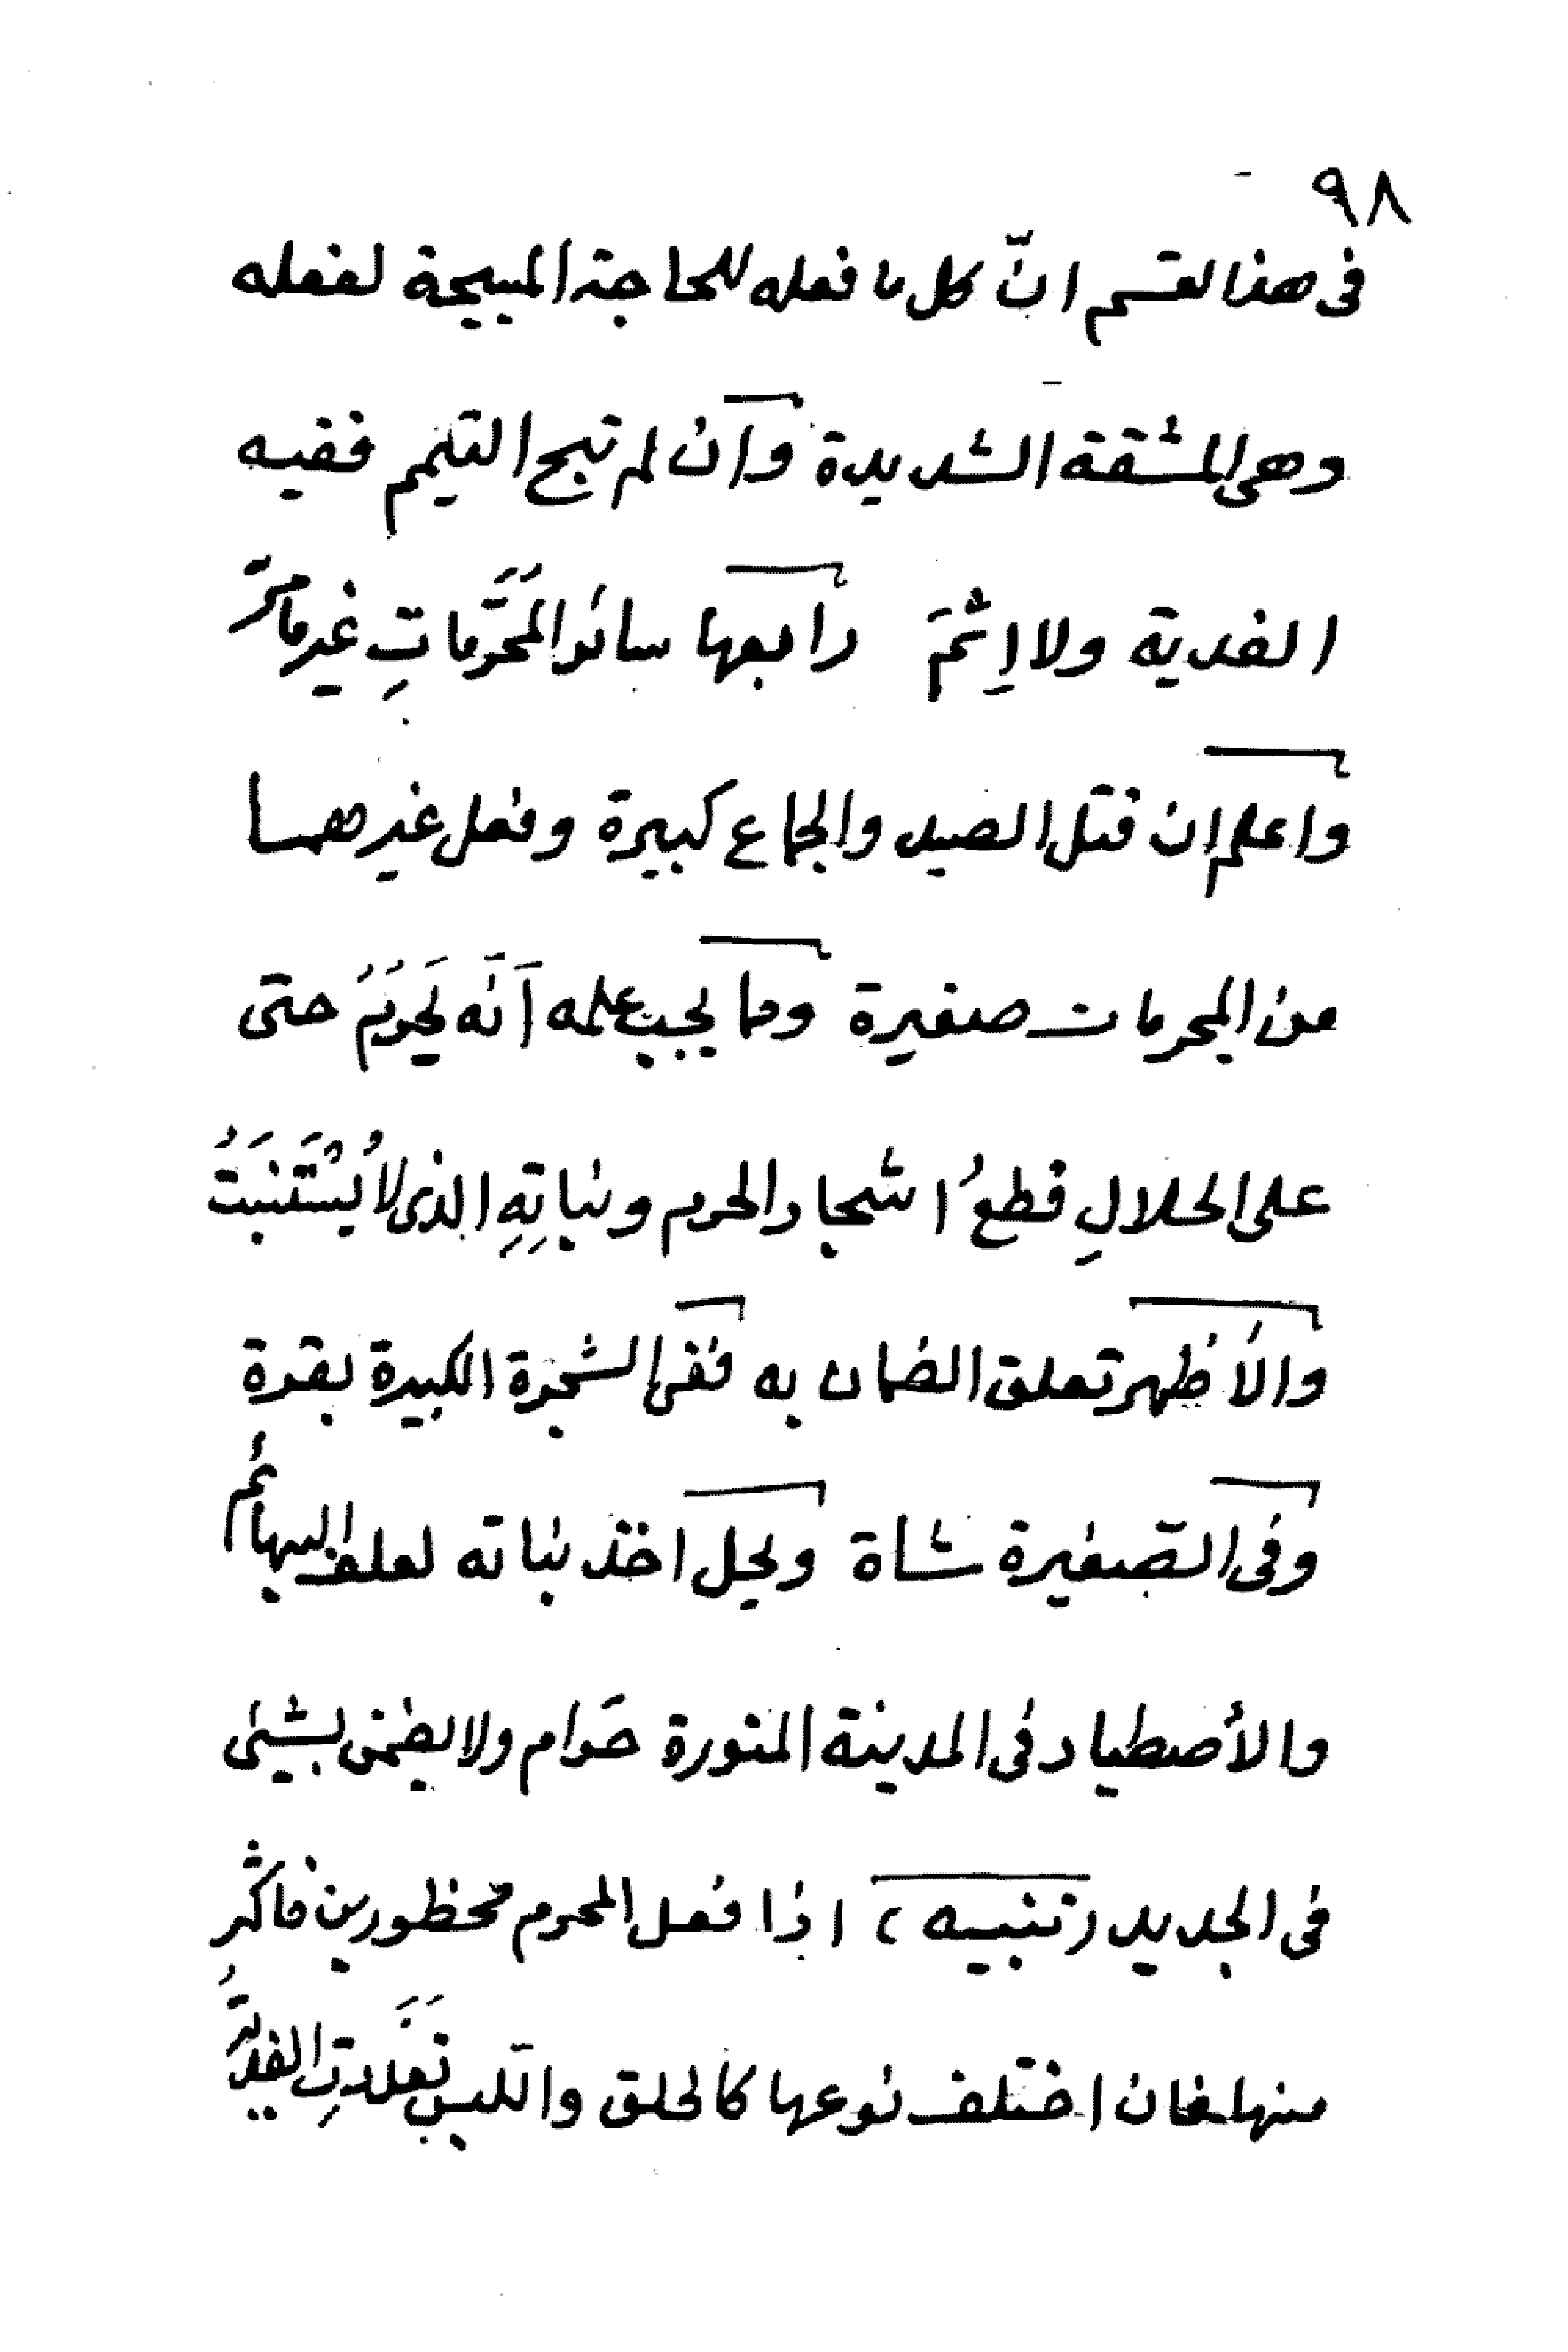 ٩٨
فى هذا القسم انّ كل ما فعله للحاجة المبيحة لفعله
وهى المشقة الشديدة وان لم تبح التيمم ففيه
الفدية ولا اِثمَ رابعها سائر المُحَرَّماتِ غير ما مرّ
واعلم ان قتل الصيد والجماع كبيرة وفعل غيرهما
من المحرمات صغيرة ومما يجب علمه اَنّه يَحْرُمُ حتى
على الحلالِ قطعُ اشجار الحرم ونباتِهِ الذى لا يُسْتَنبَتُ
والأظهر تعلق الضمان به ففى الشجرة الكبيرة بقرة
وفى الصّغيرة شاة ويحل اخذ نباته لعلف البهائم
والأصطياد فى المدينة المنورة حَرام ولا يضمن بشيئ
فى الجديد (تنبيه) اذا فعل المحرم محظورين فاكثر
منها فان اختلف نوعها كالحلق واللبس تَعَدَّدتِ الفديةُ